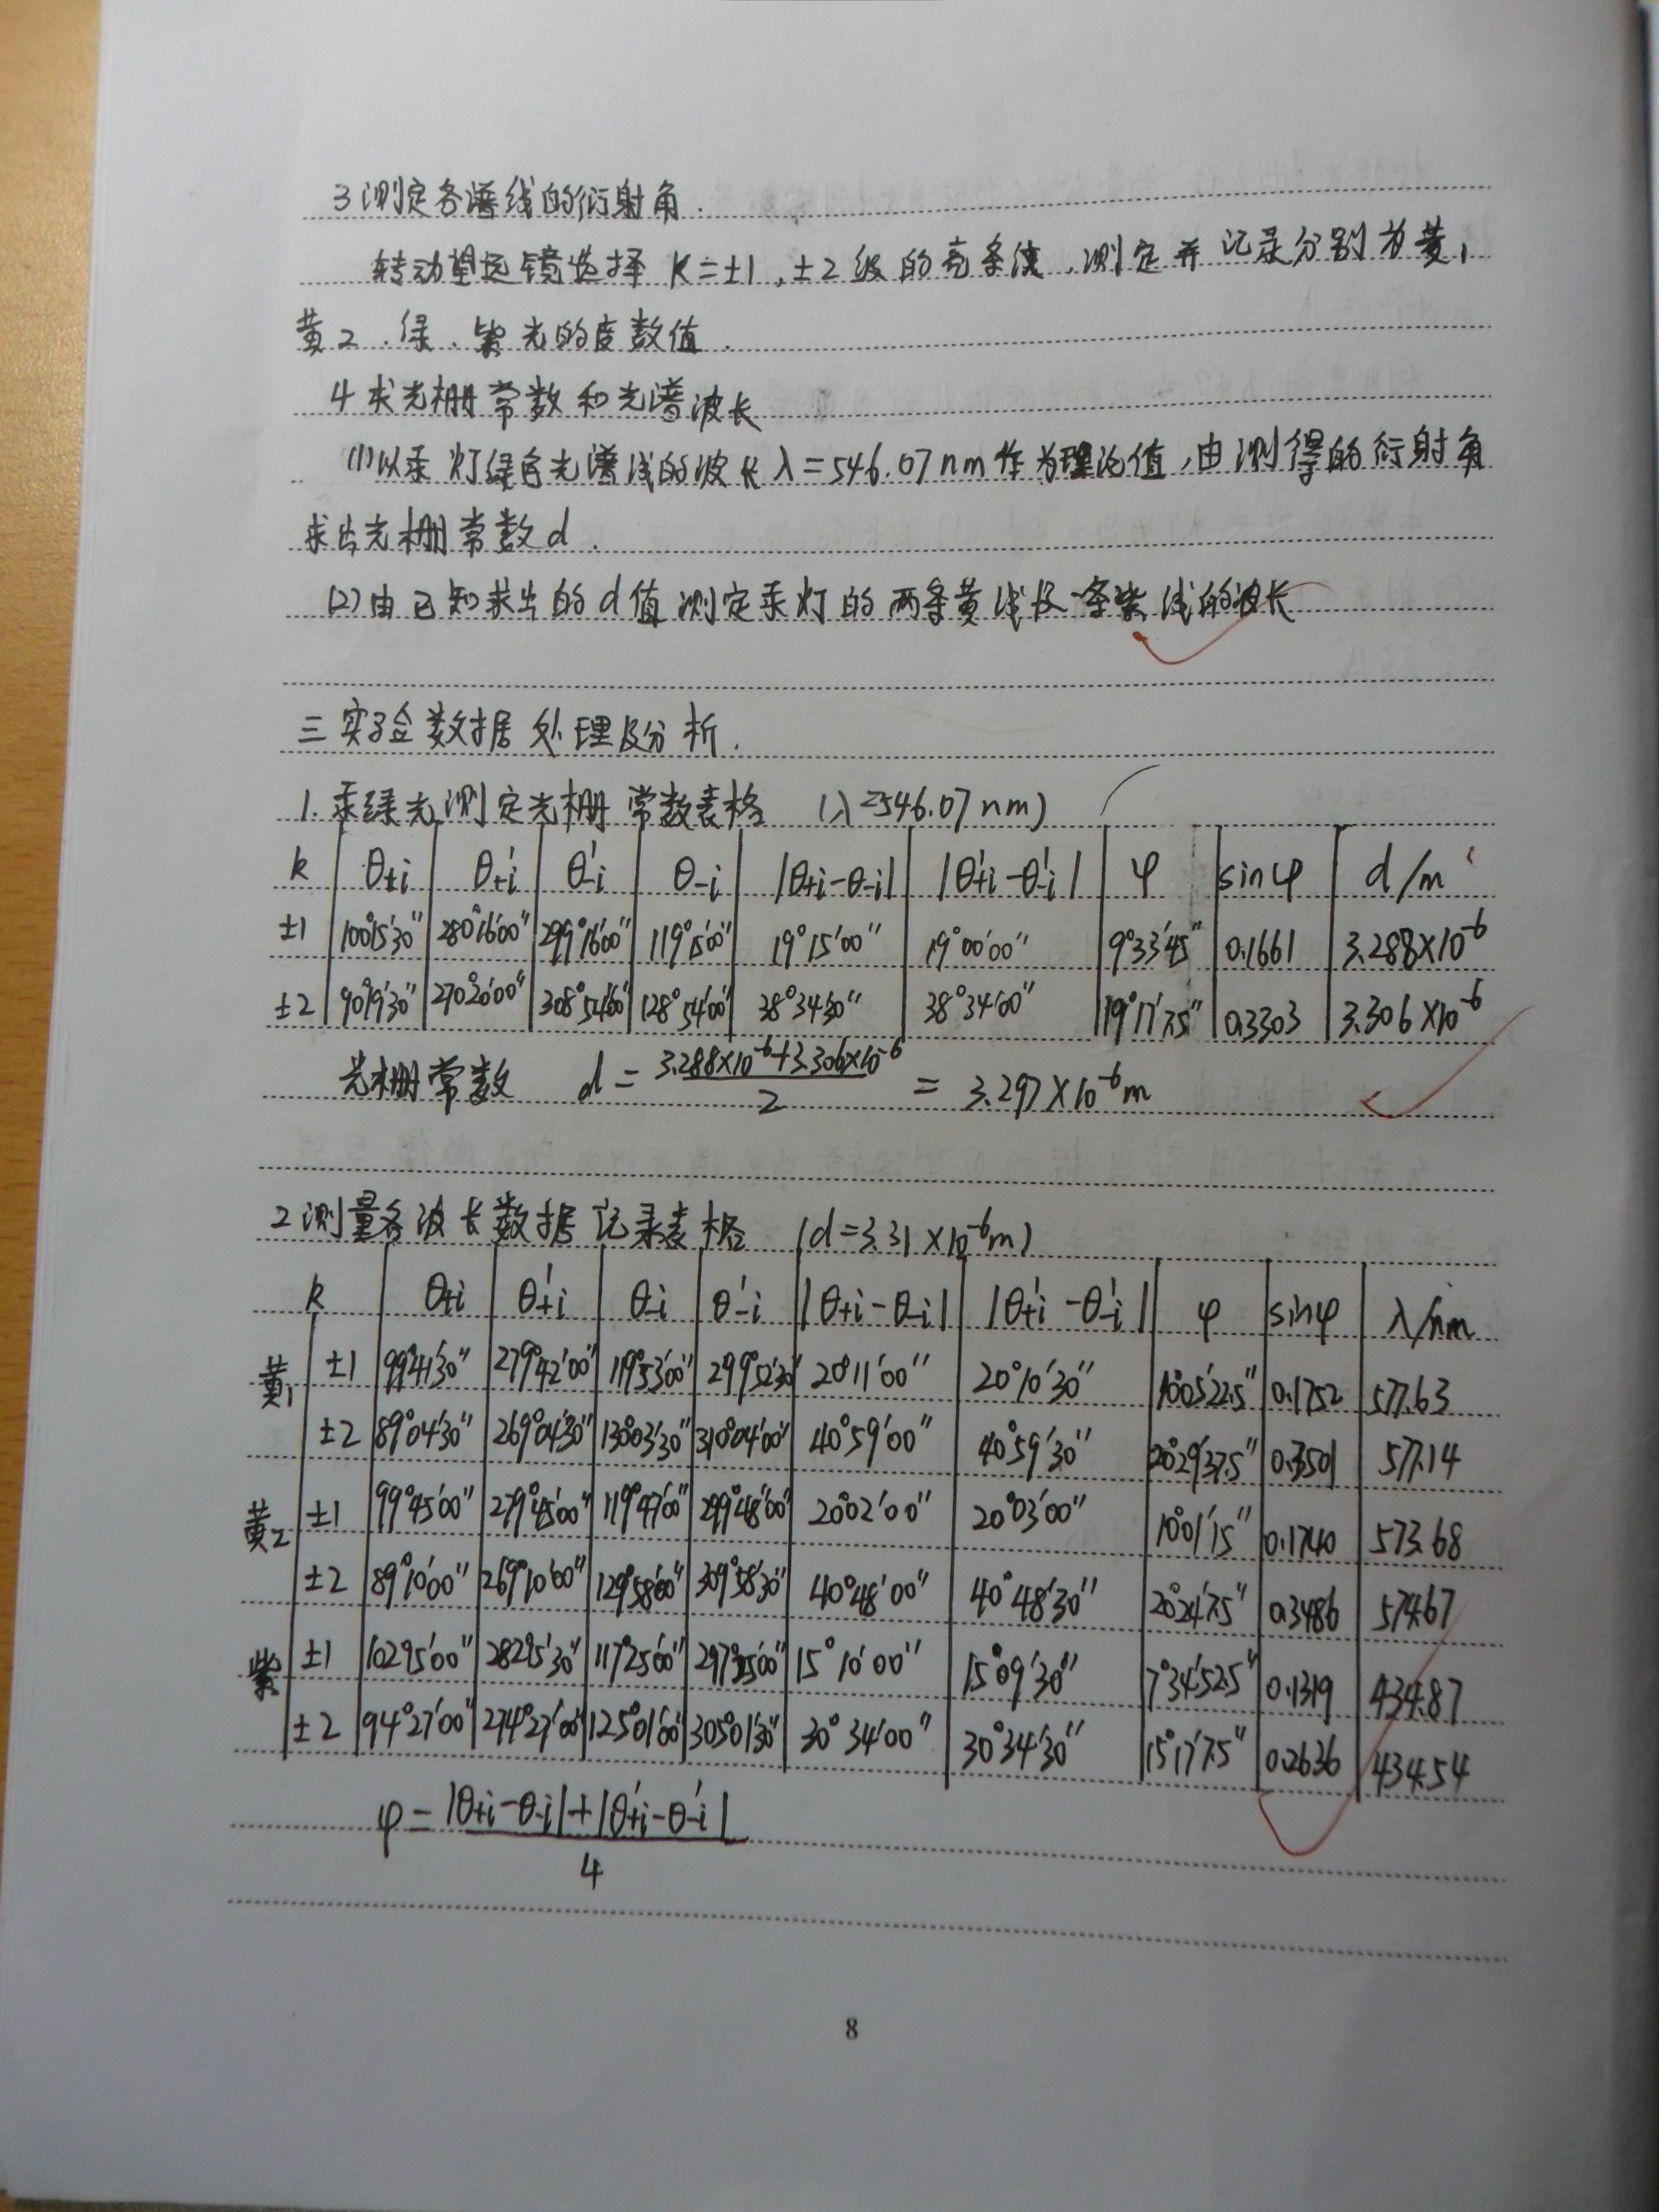 3 测定各谱线的衍射角.
转动望远镜选择 K=±1,±2级的亮条纹,测定并记录分别为黄1
黄2.绿.紫光的度数值.
4 求光栅常数和光谱波长
(1)以汞灯绿色光谱线的波长λ=546.07nm作为理论值,由测得的衍射角
求出光栅常数d.
(2)由已知求出的d值测定汞灯的两条黄线及一条紫线的波长
三 实验数据处理及分析.
1.汞绿光测定光栅常数表格 (λ=546.07nm)
k θ+i θ'+i θ'-i θ-i |θ+i-θ-i| |θ'+i-θ'-i| φ sinφ d/m
±1 100°15'30" 280°16'00" 299°16'00" 119°15'00" 19°15'00" 19°00'00" 9°33'45" 0.1661 3.288×10⁻⁶
±2 90°19'30" 270°20'00" 308°54'00" 128°54'00" 38°34'30" 38°34'00" 19°17'7.5" 0.3303 3.306×10⁻⁶
光栅常数 d=(3.288×10⁻⁶+3.306×10⁻⁶)/2=3.297×10⁻⁶m
2 测量各波长数据记录表格 (d=3.31×10⁻⁶m)
k θ+i θ'+i θ-i θ'-i |θ+i-θ-i| |θ'+i-θ'-i| φ sinφ λ/nm
黄1 ±1 99°41'30" 279°42'00" 119°53'00" 299°52'30" 20°11'00" 20°10'30" 10°05'22.5" 0.1752 577.63
±2 89°04'30" 269°04'30" 130°03'30" 310°04'00" 40°59'00" 40°59'30" 20°29'37.5" 0.3501 577.14
黄2 ±1 99°45'00" 279°45'00" 119°47'00" 299°48'00" 20°02'00" 20°03'00" 10°01'15" 0.1740 573.68
±2 89°10'00" 269°10'00" 129°58'00" 309°58'30" 40°48'00" 40°48'30" 20°24'7.5" 0.3486 574.67
紫 ±1 102°15'00" 282°15'30" 117°25'00" 297°25'00" 15°10'00" 15°09'30" 7°34'52.5" 0.1319 434.87
±2 94°27'00" 274°27'00" 125°01'00" 305°01'30" 30°34'00" 30°34'30" 15°17'7.5" 0.2636 434.54
φ=(|θ+i-θ-i|+|θ'+i-θ'-i|)/4
8